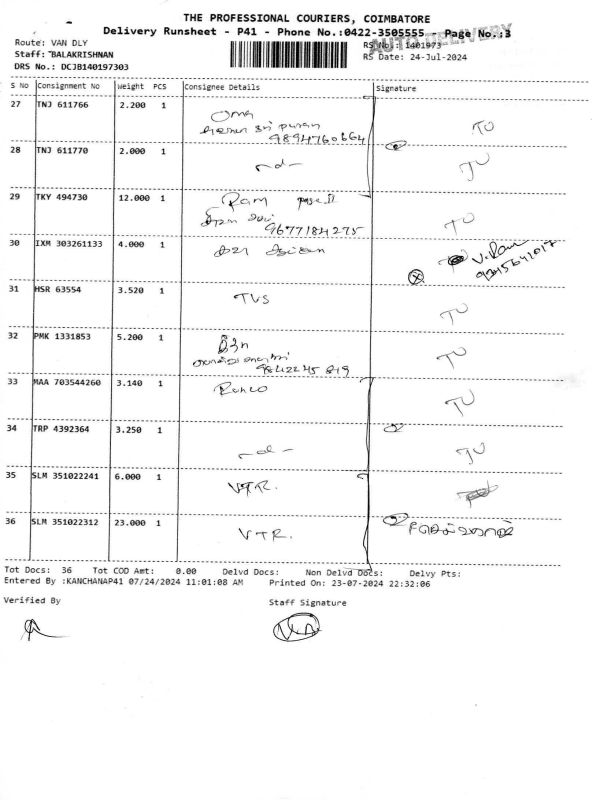 THE PROFESSIONAL COURIERS, COIMBATORE
Delivery Runsheet - P41 - Phone No.:0422-3505555 - Page No.:3
AUTO DELIVERY
Route: VAN DLY
RS No.: 1401973
Staff: BALAKRISHNAN
RS Date: 24-Jul-2024
DRS No.: DCJB140197303
S No Consignment No Weight PCS Consignee Details Signature
27 TNJ 611766 2.200 1 TU
9894760664
28 TNJ 611770 2.000 1 -d- TU
29 TKY 494730 12.000 1 Ram TU
9677184275
30 IXM 303261133 4.000 1 V.Ram
31 HSR 63554 3.520 1 TVS TU
32 PMK 1331853 5.200 1 TU
33 MAA 703544260 3.140 1 TU
34 TRP 4392364 3.250 1 -d- TU
35 SLM 351022241 6.000 1 VTR.
36 SLM 351022312 23.000 1 VTR.
Tot Docs: 36 Tot COD Amt: 0.00 Delvd Docs: Non Delvd Docs: Delvy Pts:
Entered By :KANCHANAP41 07/24/2024 11:01:08 AM Printed On: 23-07-2024 22:32:06
Verified By Staff Signature